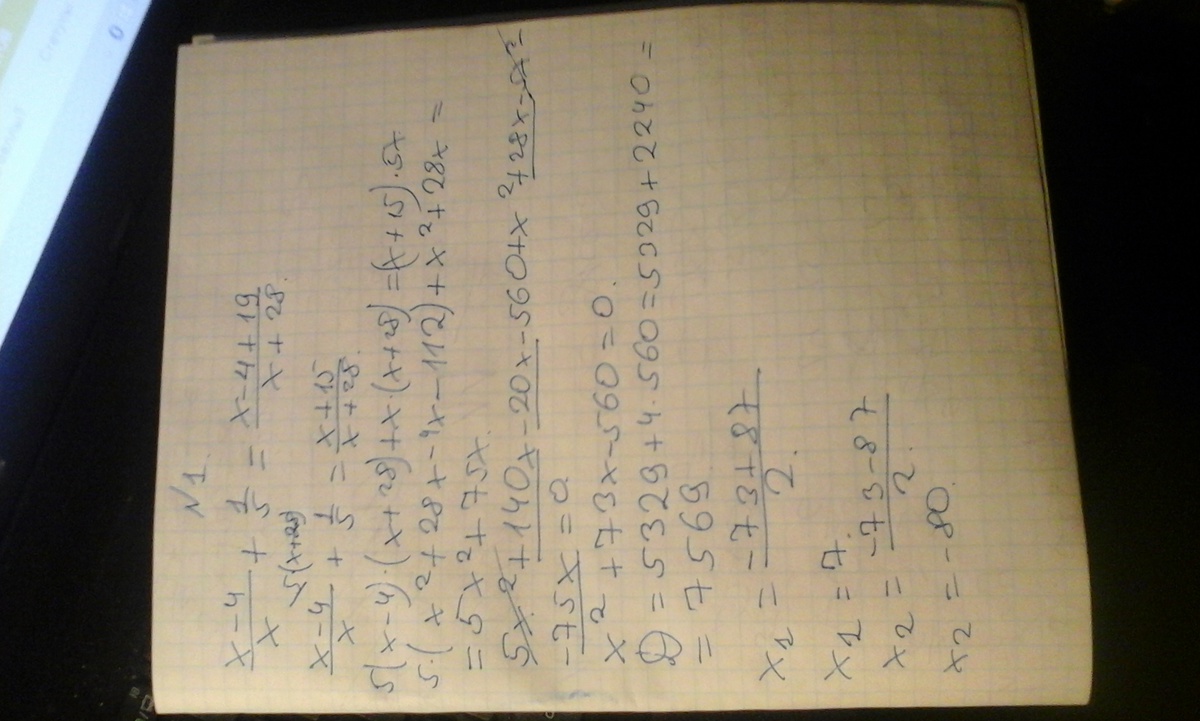 N1.
x-4/x + 1/5 = x-4+19/x+28.
5(x+28)
x-4/x + 1/5 = x+15/x+28.
5(x-4)·(x+28)+x·(x+28)=(x+15)·5x
5·(x²+28x-4x-112)+x²+28x=
=5x²+75x.
5x²+140x-20x-560+x²+28x-5x²
-75x=0.
x²+73x-560=0.
D=5329+4·560=5329+2240=
=7569
x₁=-73+87/2.
x₁=7.
x₂=-73-87/2.
x₂=-80.